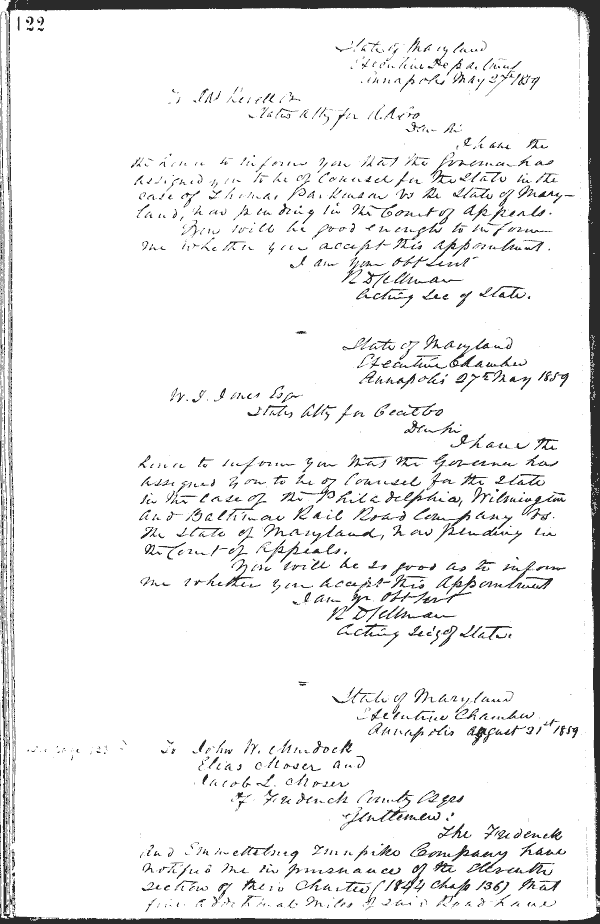 122
State of Maryland
Executive Department
Annapolis May 27th 1859
To Jas Revell
States Atty for A. A. Co
Dear Sir
I have the
the honor to inform you that the Governor has
assigned you to be of Counsel for the State in the
case of Thomas Parkinson vs the State of Mary-
land, now pending in the Court of Appeals.
You will be good enough to inform
me whether you accept this appointment.
I am your obt Servt
Acting Sec of State.
State of Maryland
Executive Chamber
Annapolis 27th May 1859
W. J. Jones Esqr
States Atty for Cecil Co
Dear Sir
I have the
honor to inform you that the Governor has
assigned you to be of Counsel for the State
in the Case of the Philadelphia, Wilmington
and Baltimore Rail Road Company vs.
the State of Maryland, now pending in
the Court of Appeals.
You will be so good as to inform
me whether you accept this appointment
I am yr obt Servt
Acting Sec'y of State.
State of Maryland
Executive Chamber
Annapolis August 31st 1859
see page 123
To John W. Murdock
Elias Moser and
Jacob L. Moser
Of Frederick County Esqrs
Gentlemen:
The Frederick
and Emmettsburg Turnpike Company have
notified me in pursuance of the eleventh
section of their Charter (1844 Chap 136) that
five additional miles of said Road have